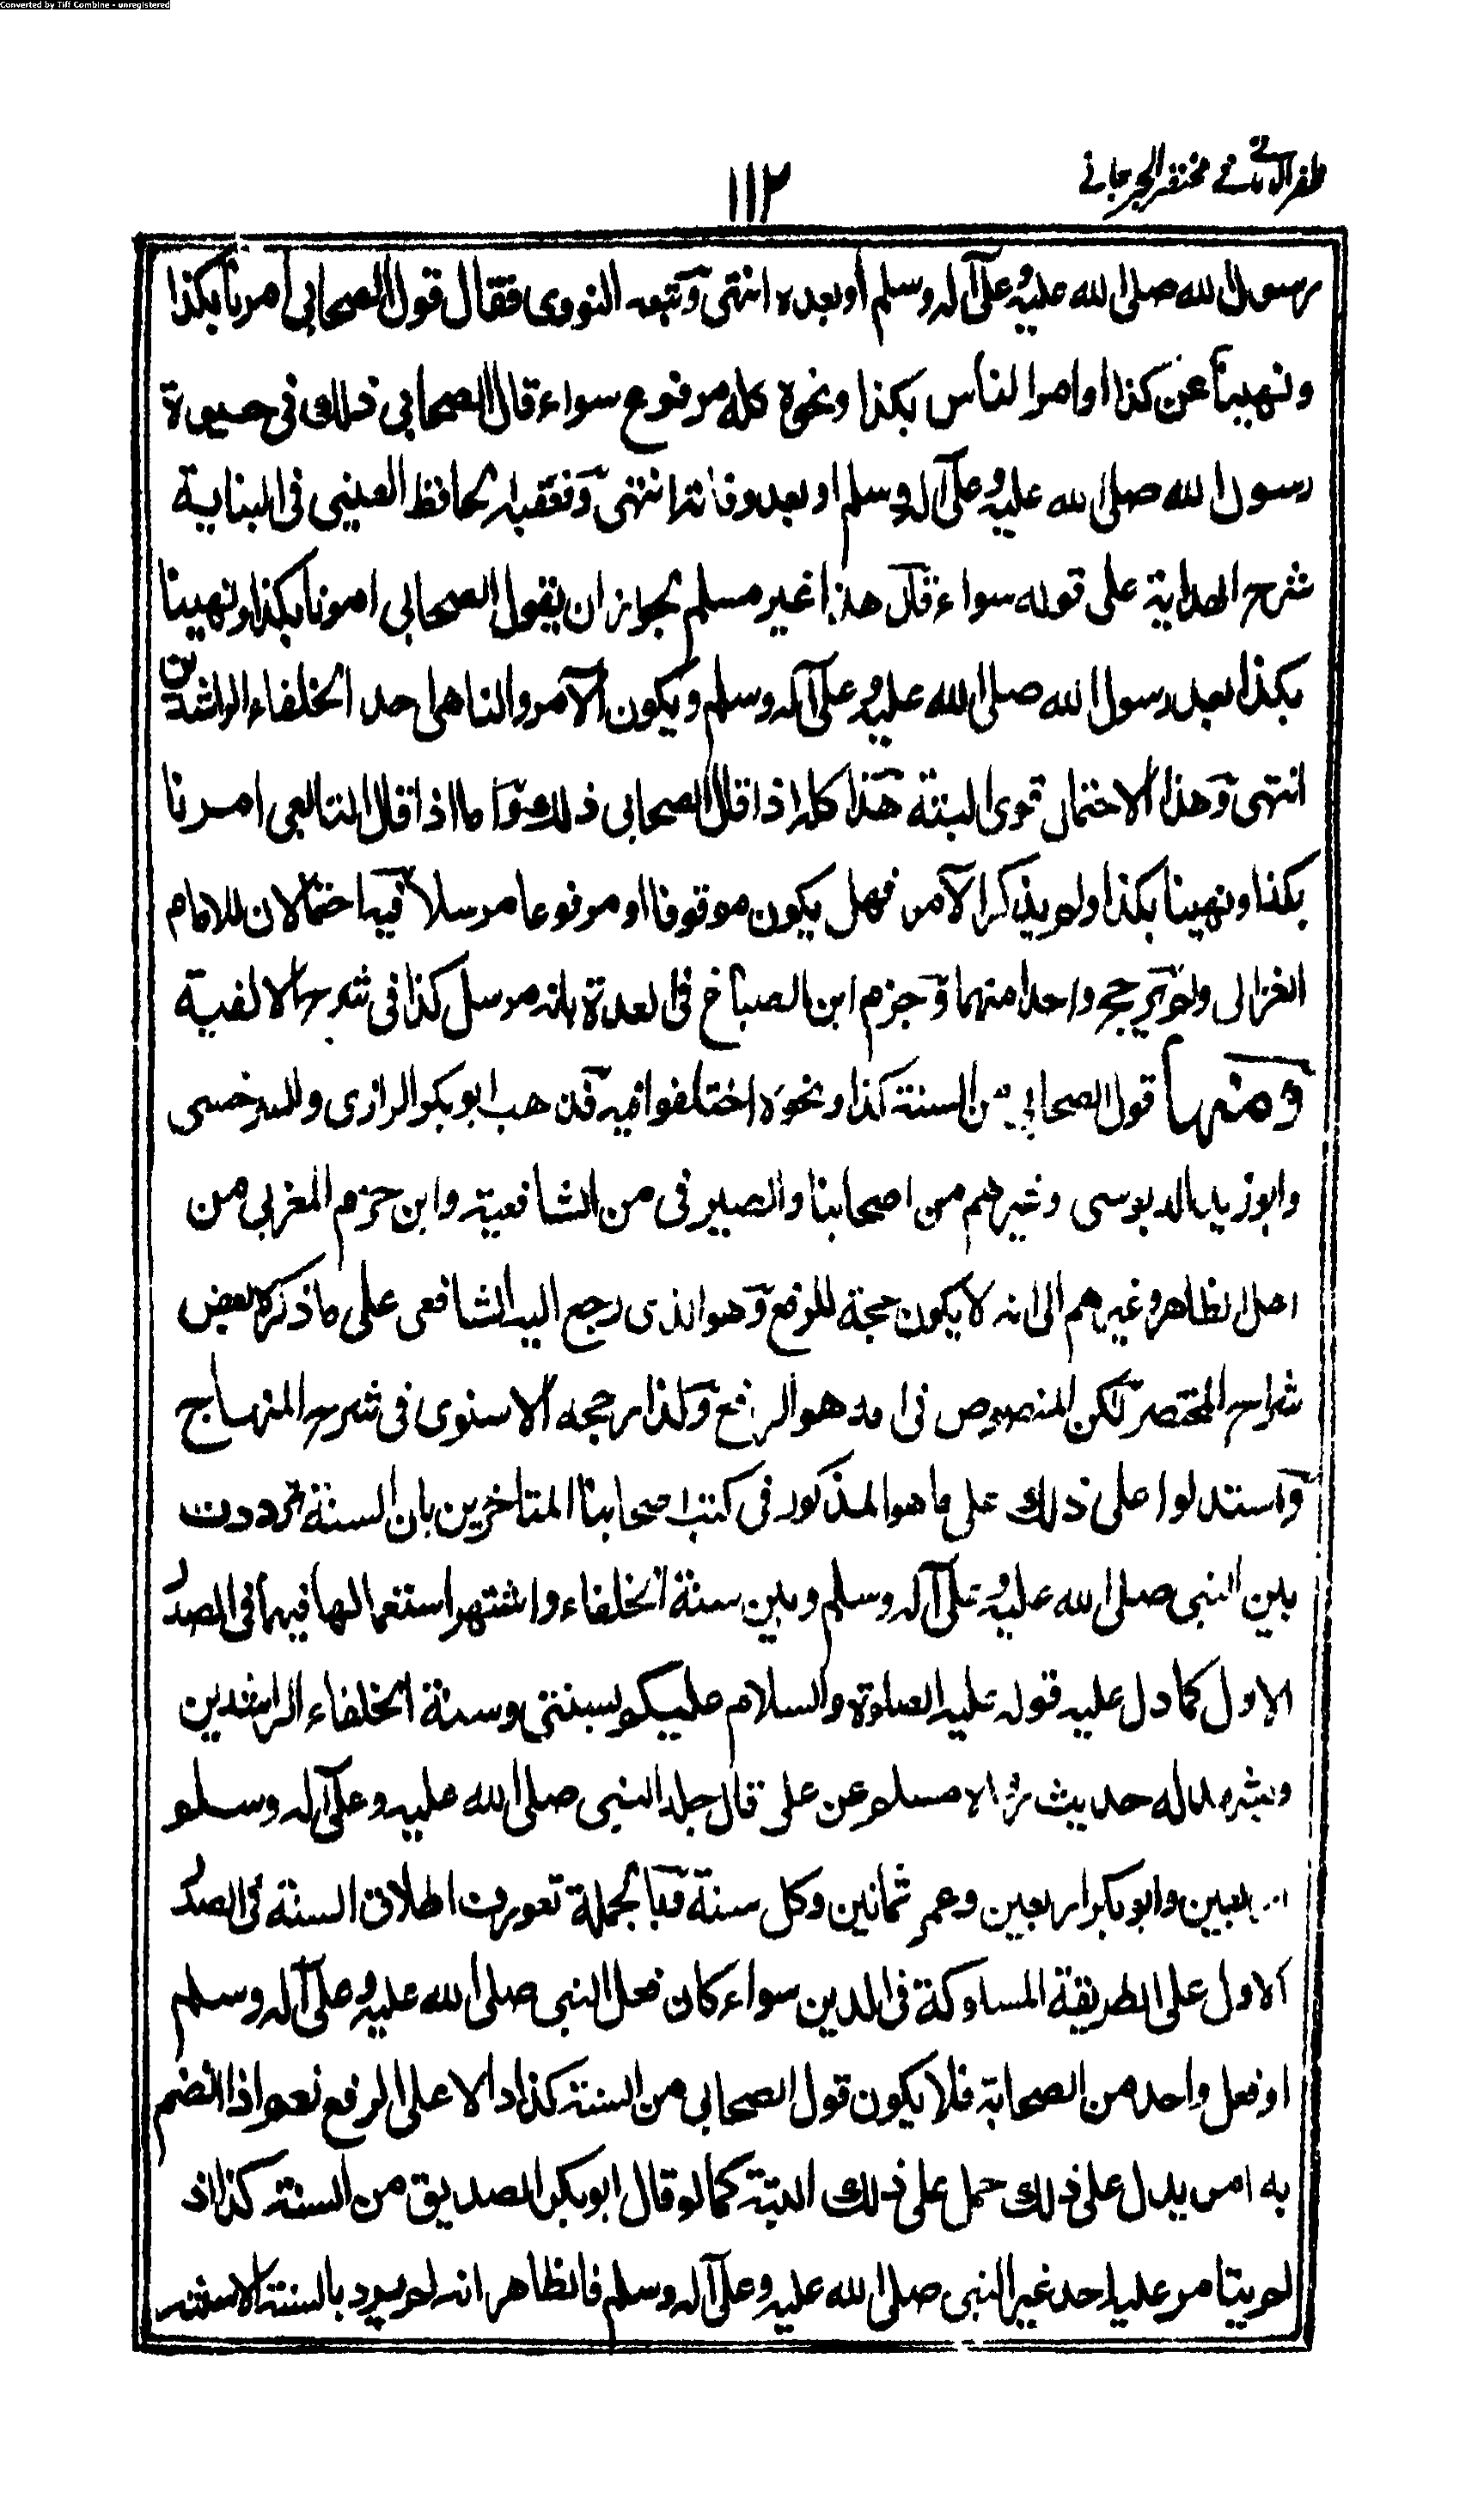 Converted by Tiff Combine - unregistered
ظفر الاماني في مختصر الجرجاني
١١٢
رسول الله صلى الله عليه وعلى آله وسلم او بعده انتهى وتبعه النووى فقال قول الصحابي امرنا بكذا
ونهينا عن كذا او امر الناس بكذا ونحوه كله مرفوع سواء قال الصحابي ذلك في حيوة
رسول الله صلى الله عليه وعلى آله وسلم او بعد وفاته انتهى وتعقبه الحافظ العينى فى البناية
شرح الهداية على قوله سواء قال هذا غير مسلم لجواز ان يقول الصحابي امرنا بكذا ونهينا
بكذا بعد رسول الله صلى الله عليه وعلى آله وسلم ويكون الآمر والناهى احد الخلفاء الراشدين
انتهى وهذا الاحتمال قوى البتة هذا كله اذا قال الصحابى ذلك واما اذا قال التابعى امرنا
بكذا ونهينا بكذا ولم يذكر الآمر فهل يكون موقوفا او مرفوعا مرسلا فيه احتمالان للامام
الغزالى ولم يرجح واحدا منهما وجزم ابن الصباغ فى العدة بانه مرسل كذا فى شرح الالفية
ومنها قول الصحابي من السنة كذا ونحوه اختلفوا فيه فذهب ابو بكر الرازى والسرخسى
وابو زيد الدبوسى وغيرهم من اصحابنا والصيرفى من الشافعية وابن حزم المغربى من
اهل الظاهر وغيرهم الى انه لا يكون حجة للرفع وهو الذى رجع اليه الشافعى على ما ذكره بعض
شراح المختصر لكن المنصوص فى امه هو الرفع وكذا رجحه الاسنوى فى شرح المنهاج
واستدلوا على ذلك على ما هو المذكور فى كتب اصحابنا المتاخرين بان السنة ترددت
بين النبى صلى الله عليه وعلى آله وسلم وبين سنة الخلفاء واشتهر استعمالها فيهما فى الصدر
الاول كما دل عليه قوله عليه الصلوة والسلام عليكم بسنتى وسنة الخلفاء الراشدين
ويشهد له حديث رواه مسلم عن على قال جلد النبى صلى الله عليه وعلى آله وسلم
اربعين وابو بكر اربعين وعمر ثمانين وكل سنة فبالجملة تعورف اطلاق السنة فى الصدر
الاول على الطريقة المسلوكة فى الدين سواء كان فعل النبى صلى الله عليه وعلى آله وسلم
او فعل واحد من الصحابة فلا يكون قول الصحابى من السنة كذا دالا على الرفع نعم اذا انضم
به امر يدل على ذلك حمل على ذلك البتة كما لو قال ابو بكر الصديق من السنة كذا اذ
لم يتامر عليه احد غير النبى صلى الله عليه وعلى آله وسلم فالظاهر انه لم يرد بالسنة الا سنته